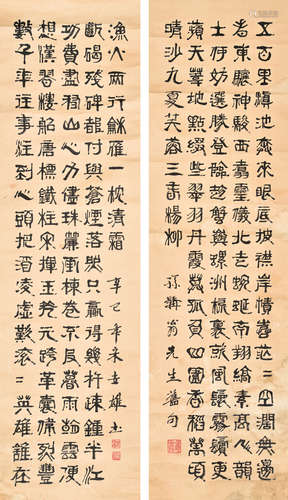 五百里滇池奔來眼底披襟岸幘喜茫〻空闊無邊
看東驤神駿西翥靈儀北走蜿蜒南翔縞素高人韻
士何妨選勝登臨趁蟹嶼螺洲梳裹就風鬟霧鬢更
蘋天葦地點綴些翠羽丹霞莫孤負四圍香稻萬頃
晴沙九夏芙蓉三春楊柳
孫髯翁先生舊句
數千年往事注到心頭把酒凌虛歎滾〻英雄誰在
想漢習樓船唐標鐵柱宋揮玉斧元跨革囊偉烈豐
功費盡移山心力儘珠簾畫棟卷不及暮雨朝雲便
斷碣殘碑都付與蒼煙落照只贏得幾杵疏鐘半江
漁火兩行穌雁一枕清霜
辛巳年